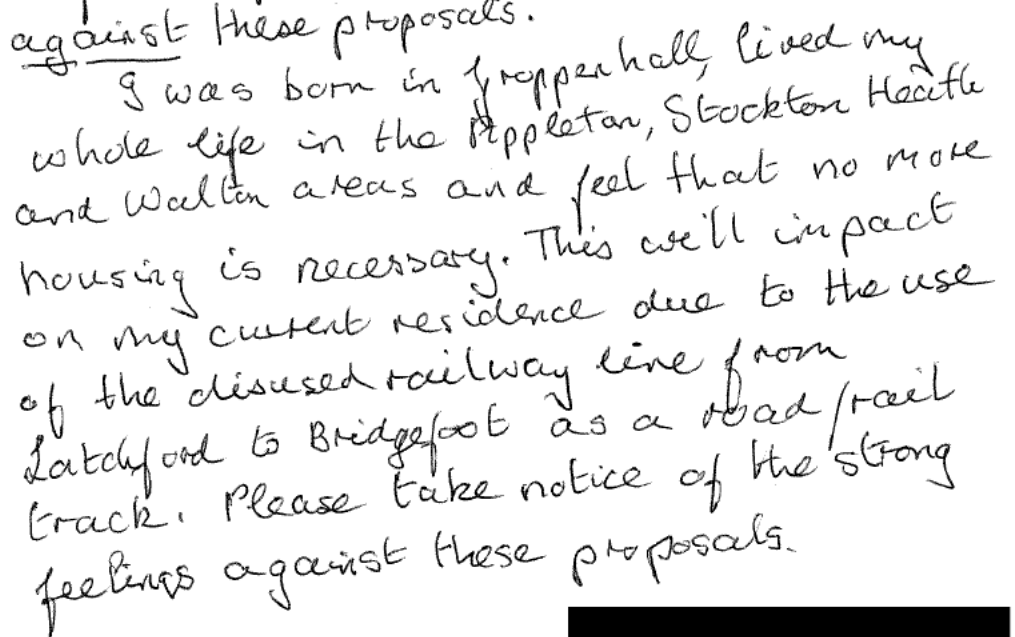 against these proposals.
I was born in Grappenhall, lived my
whole life in the Appleton, Stockton Heath
and Walton areas and feel that no more
housing is necessary. This we'll impact
on my current residence due to the use
of the disused railway line from
Latchford to Bridgefoot as a road/rail
track. Please take notice of the strong
feelings against these proposals.